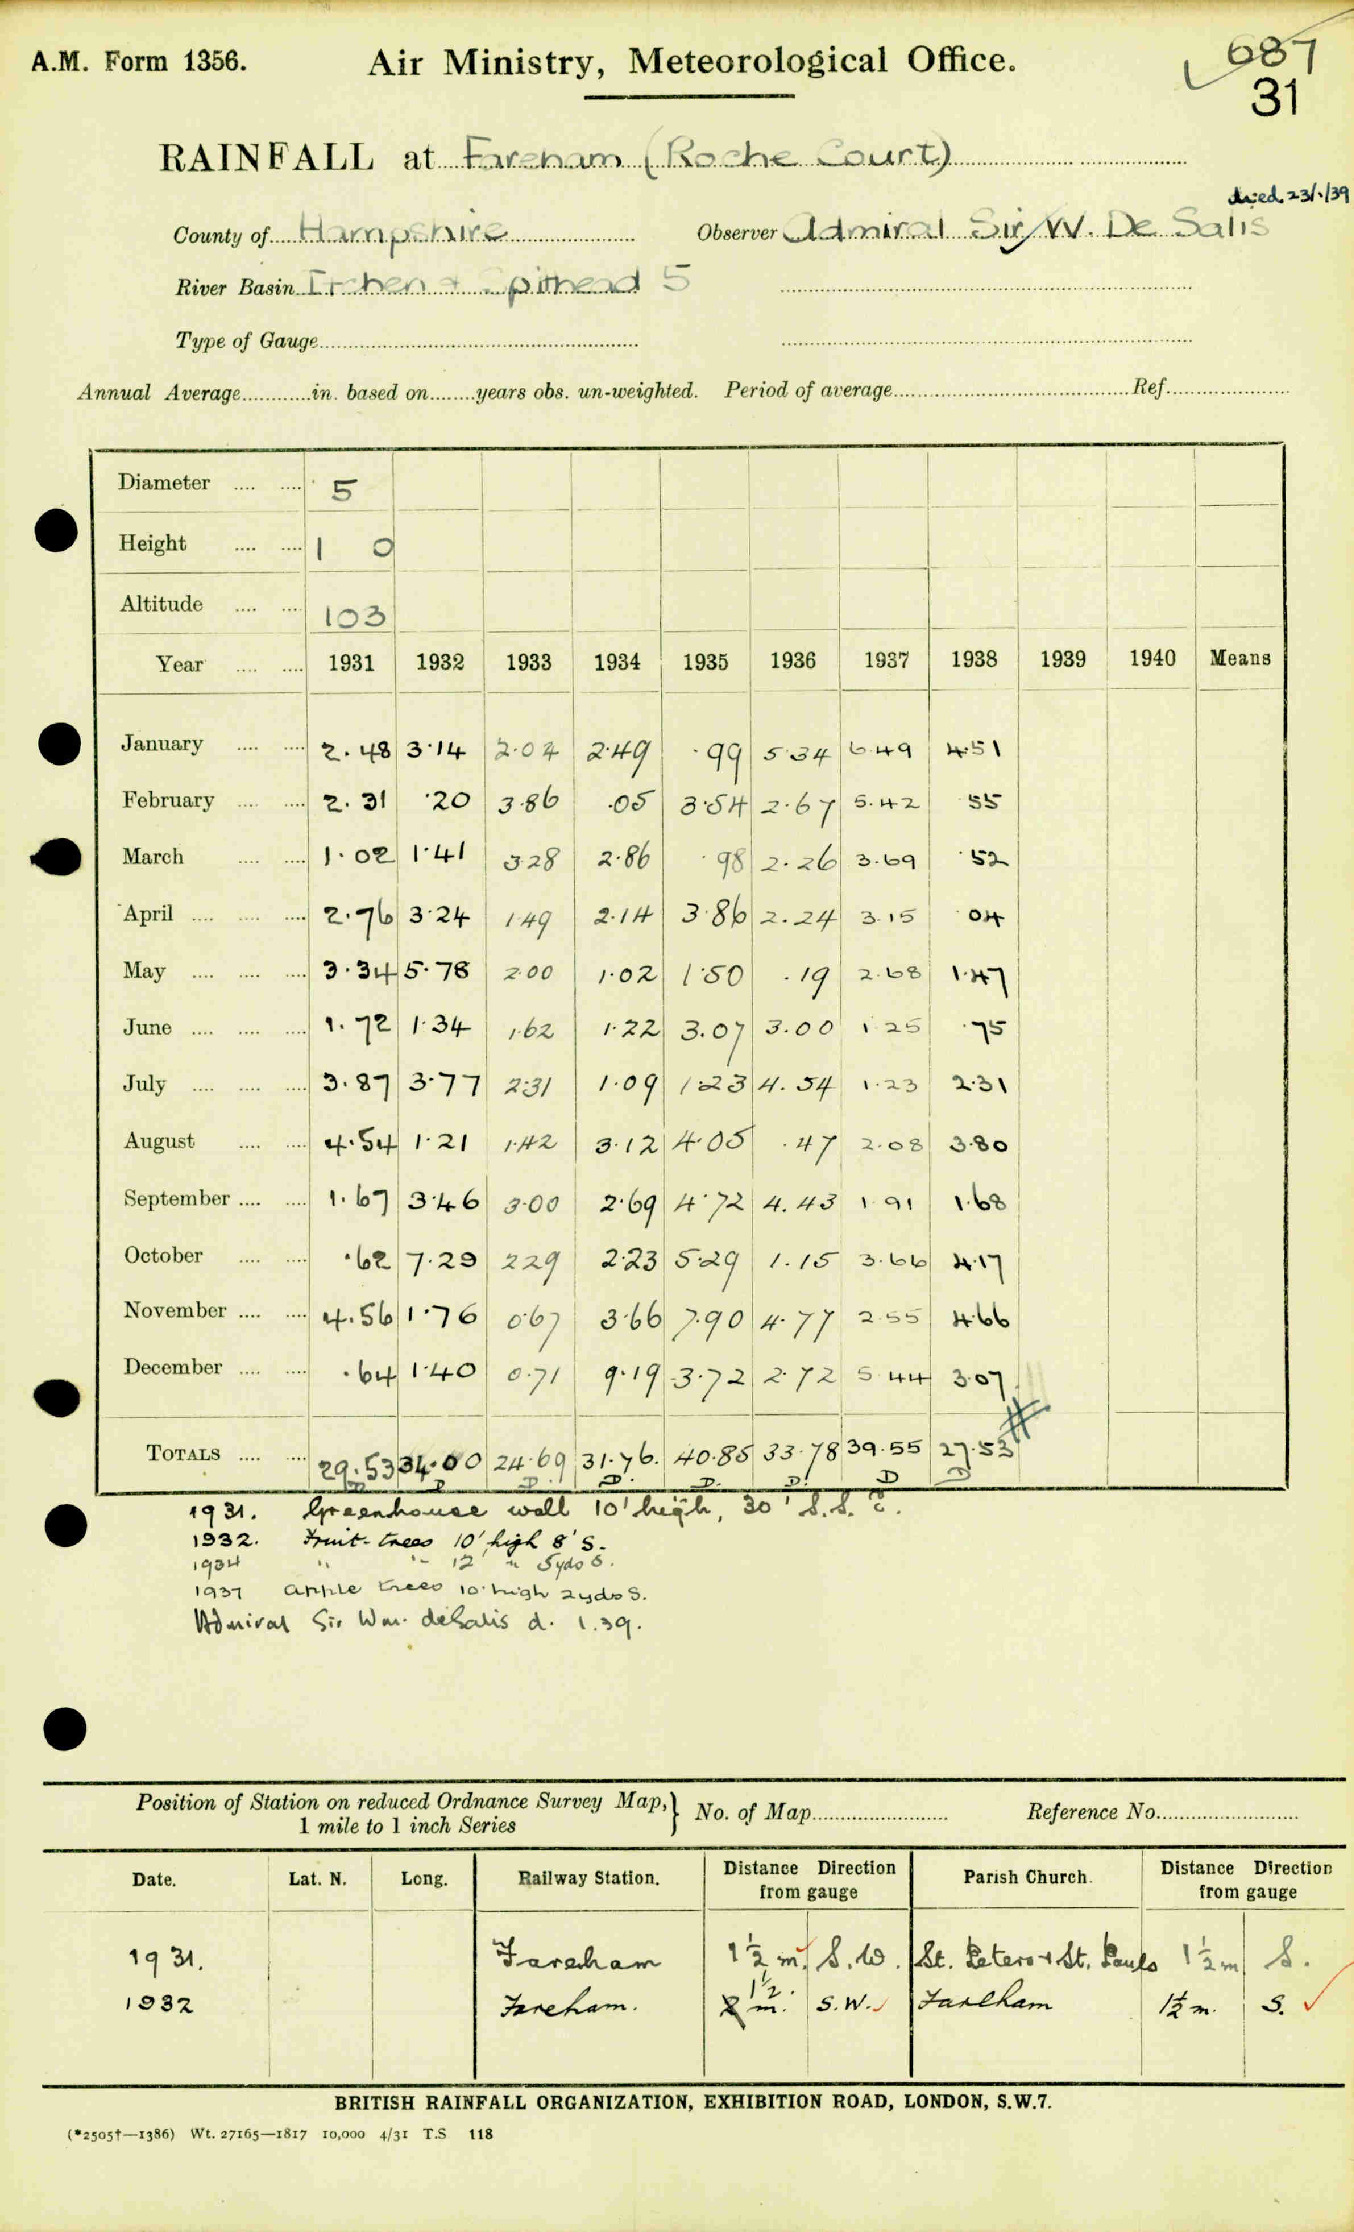 A.M. Form 1356.
Air Ministry, Meteorological Office.
687
31
RAINFALL at Fareham (Roche Court)
died 23/1/39
County of Hampshire Observer Admiral Sir W. De Salis
River Basin Itchen + Spithead 5
Type of Gauge
Annual Average in. based on years obs. un-weighted. Period of average Ref.
Diameter 5
Height 1 0
Altitude 103
Year 1931 1932 1933 1934 1935 1936 1937 1938 1939 1940 Means
January 2.48 3.14 2.04 2.49 .99 5.34 6.49 4.51
February 2.31 .20 3.86 .05 3.54 2.67 5.42 55
March 1.02 1.41 3.28 2.86 .98 2.26 3.69 .52
April 2.76 3.24 1.49 2.14 3.86 2.24 3.15 04
May 3.34 5.78 2.00 1.02 1.50 .19 2.68 1.47
June 1.72 1.34 1.62 1.22 3.07 3.00 1.25 .75
July 3.87 3.77 2.31 1.09 1.23 4.54 1.23 2.31
August 4.54 1.21 1.42 3.12 4.05 .47 2.08 3.80
September 1.67 3.46 3.00 2.69 4.72 4.43 1.91 1.68
October .62 7.29 2.29 2.23 5.29 1.15 3.66 4.17
November 4.56 1.76 0.67 3.66 7.90 4.77 2.55 4.66
December .64 1.40 0.71 9.19 3.72 2.72 5.44 3.07
TOTALS 29.53 34.00 24.69 31.76. 40.85 33.78 39.55 27.53 #
D D D D D D D D
1931. Greenhouse wall 10' high, 30' S.S.E.
1932. Fruit-trees 10' high 8' S.
1934 " " 12' " 5yds S.
1937 apple trees 10' high 2yds S.
Admiral Sir Wm. deSalis d. 1.39.
Position of Station on reduced Ordnance Survey Map, 1 mile to 1 inch Series } No. of Map Reference No.
Date. Lat. N. Long. Railway Station. Distance Direction from gauge Parish Church. Distance Direction from gauge
1931. Fareham 1½ m. S.W. St. Peters + St. Pauls 1½ m S.
1932 Fareham. 1½ m. S.W. Fareham 1½ m. S.
BRITISH RAINFALL ORGANIZATION, EXHIBITION ROAD, LONDON, S.W.7.
(*2505†—1386) Wt. 27165—1817 10,000 4/31 T.S 118